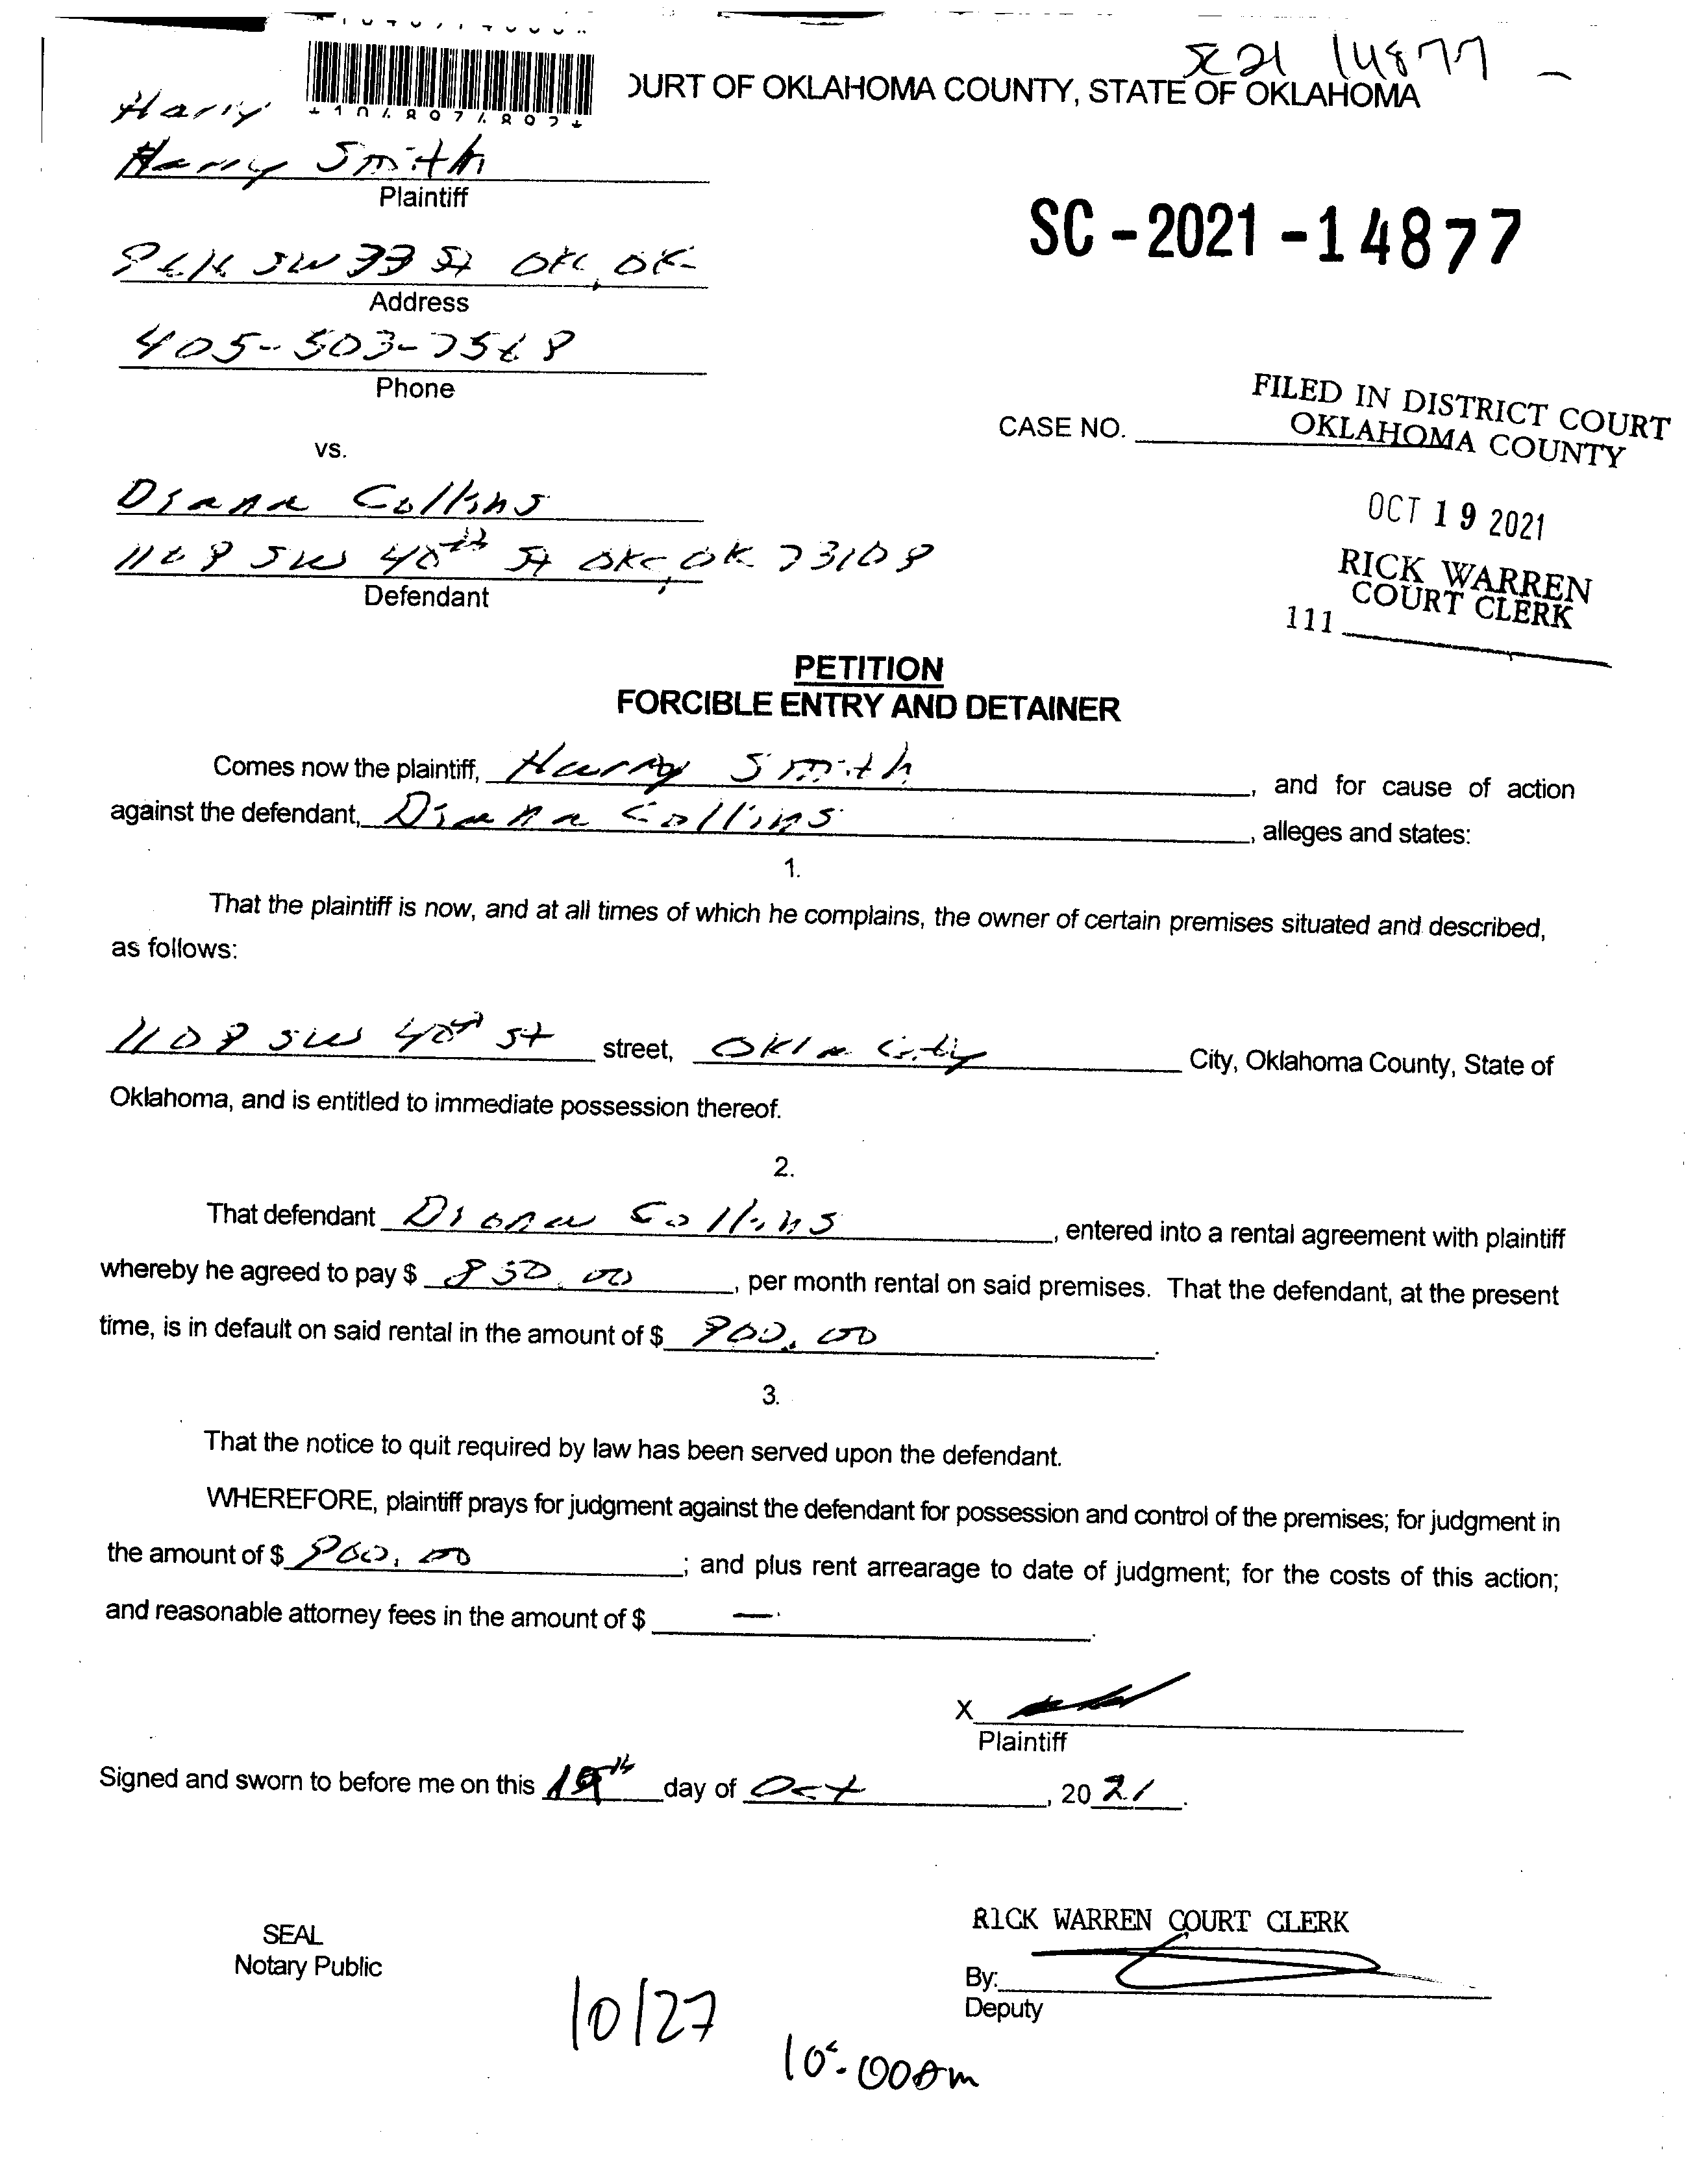 SC21 14877 -
OURT OF OKLAHOMA COUNTY, STATE OF OKLAHOMA
Harry
Harry Smith
Plaintiff
SC-2021-14877
SW 33 St OKC, OK
Address
405-503-7568
Phone
FILED IN DISTRICT COURT
OKLAHOMA COUNTY
CASE NO.
vs.
Diana Collins
OCT 19 2021
1108 SW 40th St OKC, OK 73109
Defendant
RICK WARREN
COURT CLERK
111
PETITION
FORCIBLE ENTRY AND DETAINER
Comes now the plaintiff, Harry Smith, and for cause of action
against the defendant, Diana Collins, alleges and states:
1.
That the plaintiff is now, and at all times of which he complains, the owner of certain premises situated and described,
as follows:
1108 SW 40th St street, Okla City City, Oklahoma County, State of
Oklahoma, and is entitled to immediate possession thereof.
2.
That defendant Diana Collins, entered into a rental agreement with plaintiff
whereby he agreed to pay $ 850.00, per month rental on said premises. That the defendant, at the present
time, is in default on said rental in the amount of $ 900.00.
3.
That the notice to quit required by law has been served upon the defendant.
WHEREFORE, plaintiff prays for judgment against the defendant for possession and control of the premises; for judgment in
the amount of $ 900.00; and plus rent arrearage to date of judgment; for the costs of this action;
and reasonable attorney fees in the amount of $ —.
X
Plaintiff
Signed and sworn to before me on this 19th day of Oct, 2021.
RICK WARREN COURT CLERK
SEAL
Notary Public
By:
Deputy
10/27
10:00am